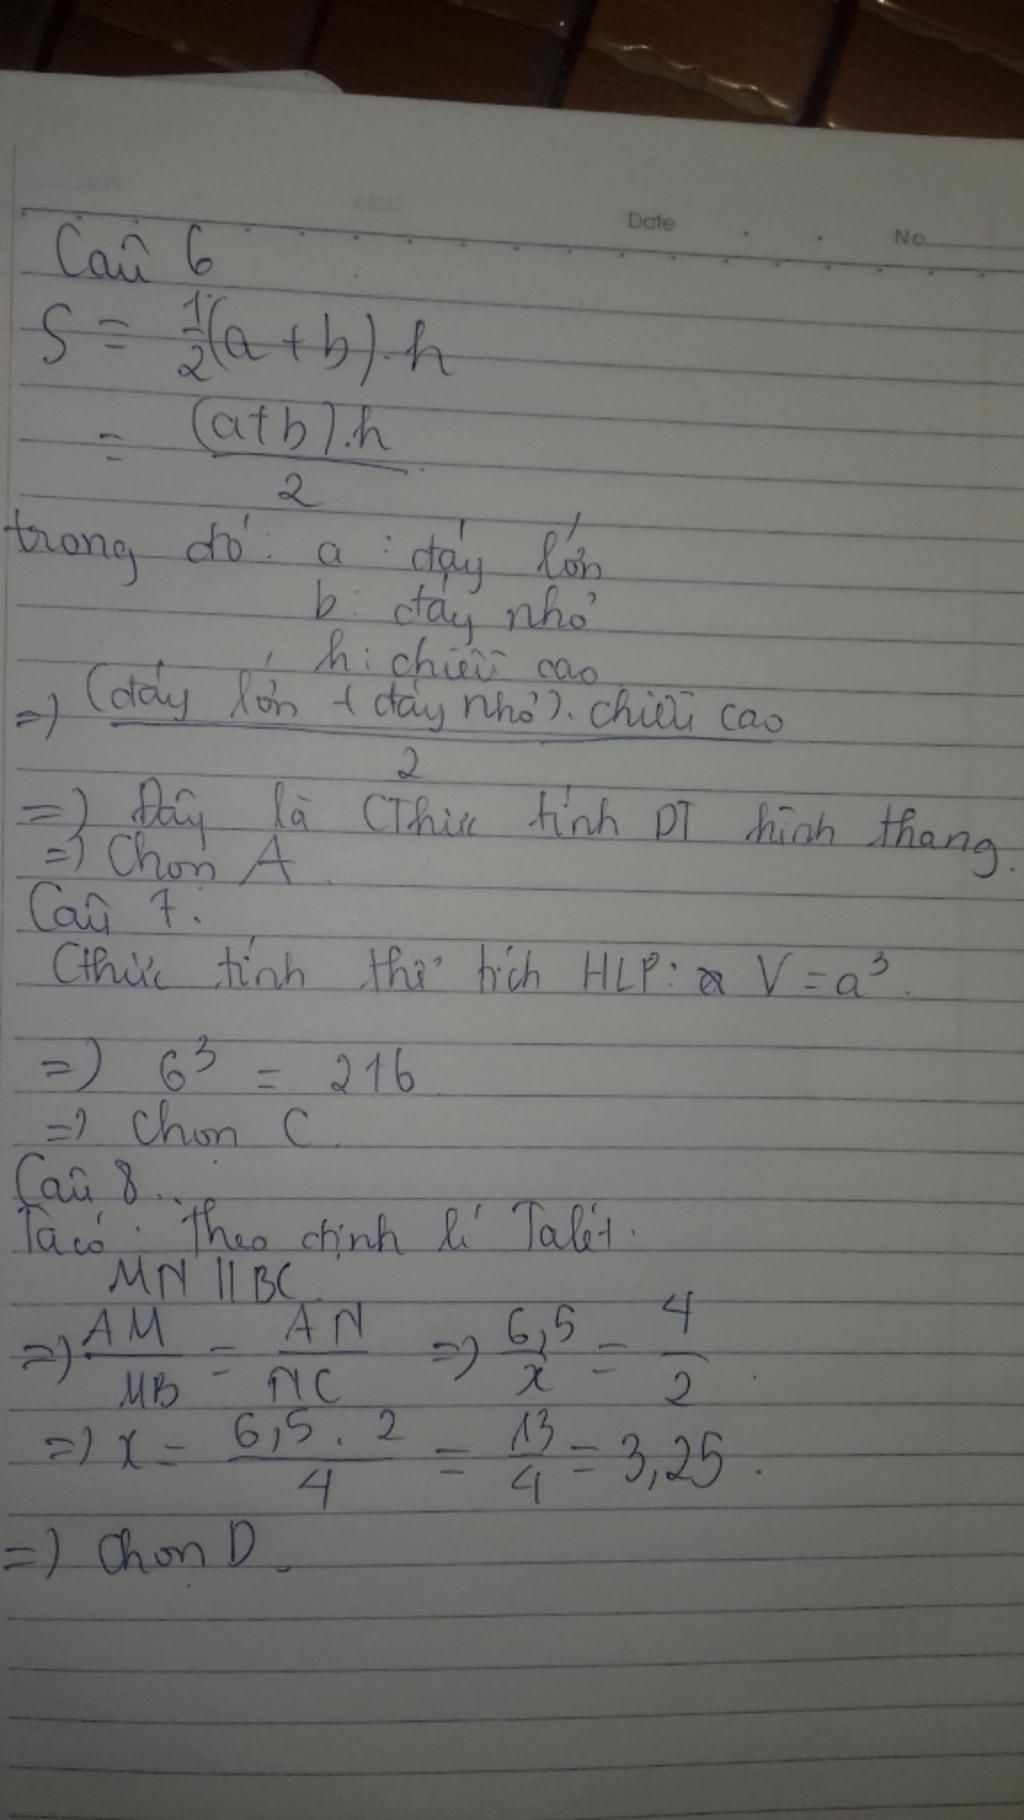 Date
No
Câu 6
S = 1/2 (a + b). h
= (a+b).h / 2
trong đó: a : đáy lớn
b: đáy nhỏ
h: chiều cao
=) (đáy lớn + đáy nhỏ). chiều cao / 2
=) Đây là CThức tính DT hình thang.
=) Chọn A
Câu 7:
Cthức tính thể tích HLP: V = a³.
=) 6³ = 216
=) Chọn C.
Câu 8.
Ta có: Theo định lí Talét.
MN // BC
=) AM/MB = AN/NC =) 6,5/x = 4/2
=) x = 6,5 . 2 / 4 = 13/4 = 3,25.
=) Chọn D.